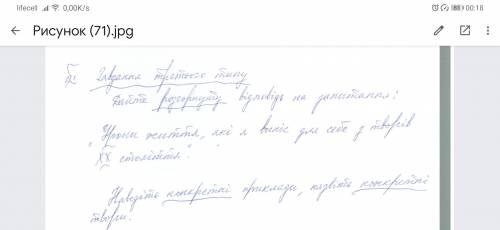 lifecell 0,00K/s 00:18
Рисунок (71).jpg
Завдання третього типу
Дайте розгорнуту відповідь на запитання:
"Уроки життя, які я виніс для себе з творів
XX століття".
Наведіть конкретні приклади, назвіть конкретні
твори.